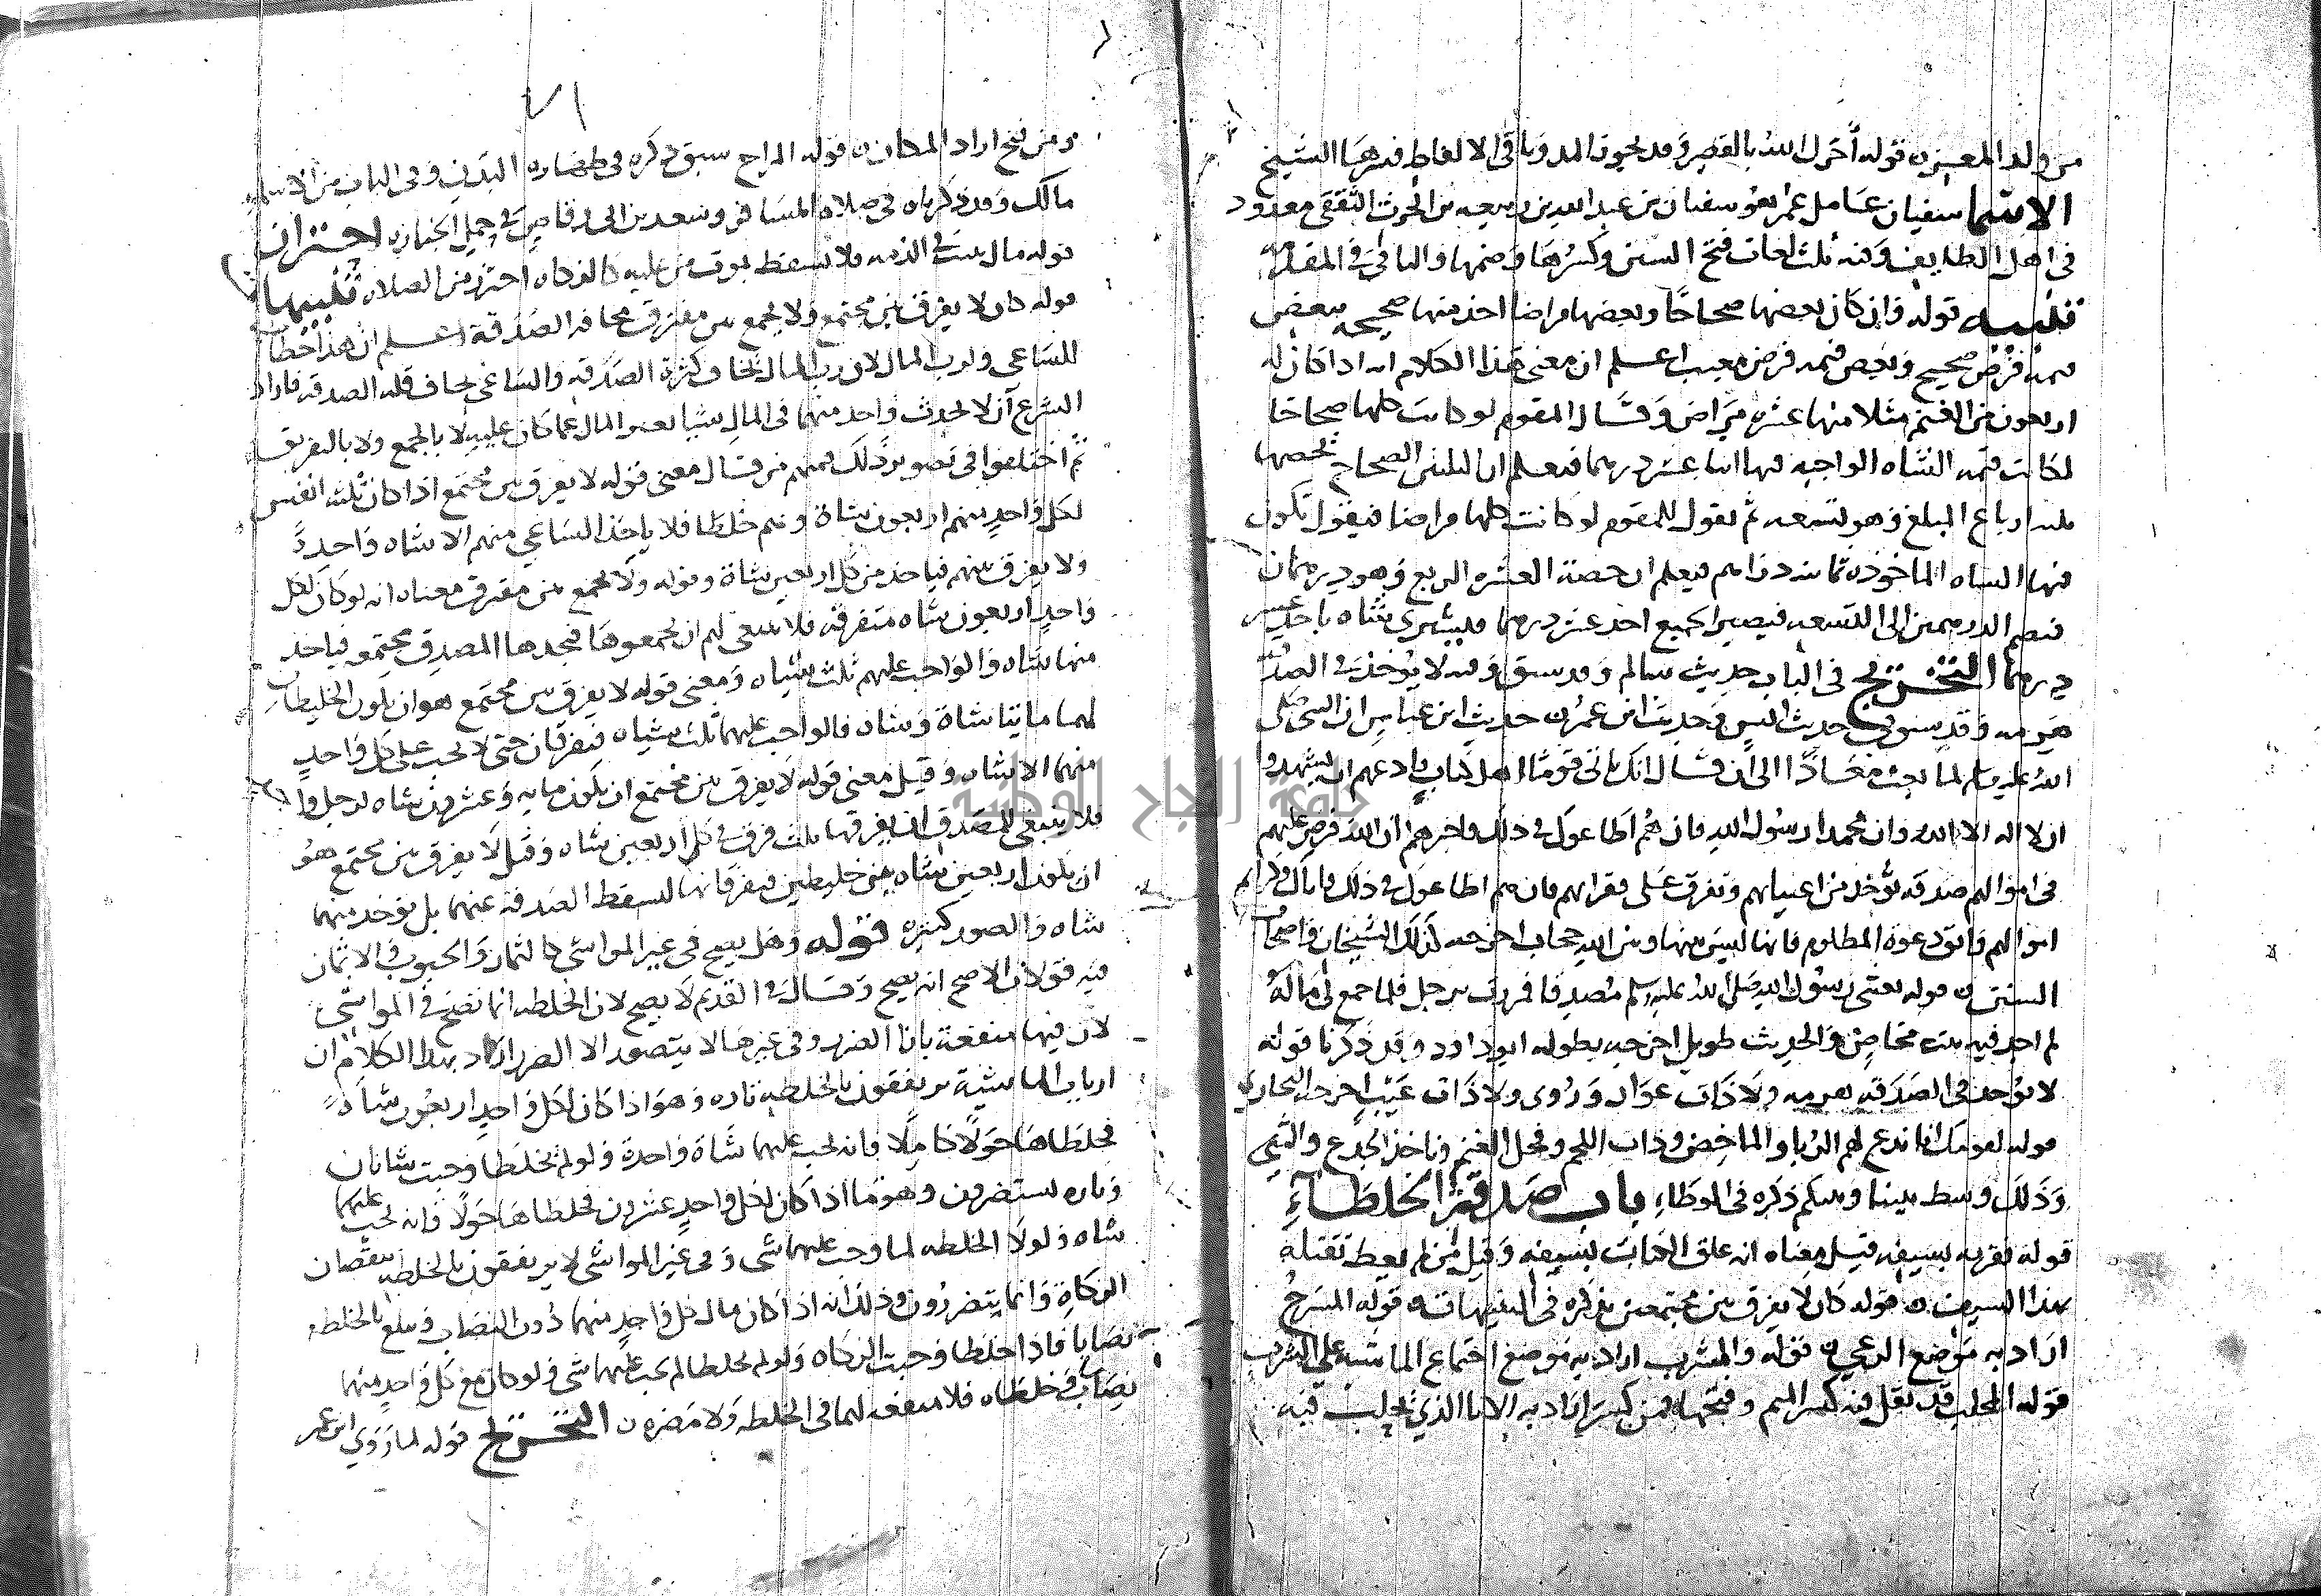 من ولد المعز ن قوله آجرك الله بالقصر وقد يجوز المد وباقي الالفاظ فسرها الشيخ
الاسما سفيان عامل عمر هو سفيان بن عبد الله بن ربيعه بن الحرث الثقفي معدود
في اهل الطايف وفيه ثلث لغات فتح السين وكسرها وضمها والباقي في المقدمة
تنبيه قوله وان كان بعضها صحاحا وبعضها مراضا اخذ منها صحيحه ببعض
قيمة فرض صحيح وبعض قيمه فرض معيب اعلم ان معنى هذا الكلام انه اذا كان له
اربعون من الغنم مثلا منها عشرة مراض وقال المقوم لو كانت كلها صحاحا
لكانت قيمه الشاه الواجبه فيها اثنا عشر درهما فيعلم ان الثلثين الصحاح تخصها
ثلثه ارباع المبلغ وهو تسعه ثم يقول للمقوم لو كانت كلها مراضا فيقول تكون
قيمه الشاه الماخوذه ثمانيه دراهم فيعلم ان حصة العشره الربع وهو درهمان
فيضم الدرهمين الى التسعه فيصير الجميع احد عشر درهما فليشتري شاه باحد عشر
درهما التخريج في الباب حديث سالم وقد سبق وفيه لا يؤخذ في الصدقة
هرمه وقد سبق في حديث انس وحديث ابن عمر ن حديث ابن عباس ان النبي صلى
الله عليه وسلم لما بعث معاذا الى ان قال انك تاتي قوما اهل كتاب وادعهم ان يشهدوا
ان لا اله الا الله وان محمدا رسول الله فان هم اطاعوك في ذلك فاخبرهم ان الله فرض عليهم
في اموالهم صدقه تؤخذ من اغنيائهم وتفرق على فقرائهم فان هم اطاعوك في ذلك فاياك وكرايم
اموالهم واتق دعوة المظلوم فانها ليس بينها وبين الله حجاب اخرجه كذلك الشيخان واصحاب
السنن ن قوله بعثني رسول الله صلى الله عليه وسلم مصدقا فمررت برجل فلما جمع لي ماله
لم اجد فيه بنت مخاض والحديث طويل اخرجه بطوله ابو داود وقد ذكرنا قوله
لا يؤخذ في الصدقه هرمه ولا ذات عوار وروى ولا ذات عيب اخرجه البخاري
قوله لقومك انا ندع لهم الربا والماخض وذات اللحم وفحل الغنم وناخذ الجذع والثني
وذلك وسط بيننا وبينكم ذكره في الموطاء باب صدقة الخلطاء
قوله نقربه بسيفه قيل معناه انه علق الكتاب بسيفه وقيل من لم يعط تقتله
بهذا السيف ن قوله كان لا يفرق بين مجتمعين نذكره في التنبيهات ن قوله المسرح
اراد به موضع الرعي ن قوله والمشرب اراد به موضع اجتماع الماشيه على الشرب
قوله المحلب قد نقل فيه كسر الميم وفتحها فمن كسر اراد به الانا الذي يحلب فيه
ومن فتح اراد المكان ن قوله المراح سبق ذكره في طهاره البدن وفي الباب من الاسما
مالك وقد ذكرناه في صلاه المسافر وسعد بن ابي وقاص في حمل الجنازه احتزان
قوله مال يثبت في الذمه فلا يسقط بموت من عليه كالزكاه احترز من الصلاه تنبيهات
قوله كان لا يفرق بين مجتمع ولا يجمع بين مفترق مخافه الصدقة اعلم ان هذا خطاب
للساعي ولرب المال لان رب المال يخاف كثرة الصدقه والساعي يخاف قله الصدقه فاراد
الشرع ان لا يحدث واحد منهما في المال شيا يغير المال عما كان عليه لا بالجمع ولا بالتفريق
ثم اختلفوا في تصوير ذلك فمنهم من قال معنى قوله لا يفرق بين مجتمع اذا كان ثلثه انفس
لكل واحد منهم اربعون شاة وهم خلطا فلا ياخذ الساعي منهم الا شاه واحدة
ولا يفرق بينهم فياخذ من كل اربعين شاة وقوله ولا يجمع بين مفترق معناه انه لو كان لكل
واحد اربعون شاه متفرقه فلا ينبغي لهم ان يجمعوها فيجدها المصدق مجتمعه فياخذ
منها شاه والواجب عليهم ثلث شياه ومعنى قوله لا يفرق بين مجتمع هو ان يكون الخليطان
لهما مايتا شاة وشاه فالواجب عليهما ثلث شياه فيفرقان حتى لا يجب على كل واحد
منهما الا شاه وقيل معنى قوله لا يفرق بين مجتمع ان يكون مايه وعشرون شاه لرجل واحد
فلا ينبغي للمصدق ان يفرقها ثلث فرق في كل اربعين شاه وقيل لا يفرق بين مجتمع هو
ان يكون اربعين شاه بين خليطين فيفرقانها لتسقط الصدقه عنهما بل يؤخذ منهما
شاه والصور كثيره قوله وهل يصح في غير المواشي كالثمار والحبوب والاثمان
فيه قولان الاصح انه يصح وقال في القديم لا يصح لان الخلطه انما تصح في المواشي
لان فيها منفعة بازا الضرر وفي غيرها لا يتصور الا الضرر اراد بهذا الكلام ان
ارباب الماشية يرتفقون بالخلطه تاره وهو اذا كان لكل واحد اربعون شاة
فخلطاها حولا كاملا فانه يجب عليهما شاة واحدة ولو لم يخلطا وجبت شاتان
وتاره يستضرون وهو ما اذا كان لكل واحد عشرون فخلطاها حولا فانه يجب عليهما
شاه ولولا الخلطه لما وجب عليهما شي وفي غير المواشي لا يرتفقون بالخلطه بنقصان
الزكاة وانما يتضررون وذلك انه اذا كان مال كل واحد منهما دون النصاب وبلغ بالخلطه
نصابا فاذا خلطا وجبت الزكاه ولو لم يخلطا لم يجب عليهما شي ولو كان مع كل واحد منهما
نصاب وخلطاه فلا منفعه لهما في الخلطه ولا مضره ن التخريج قوله لما روي ابن عمر